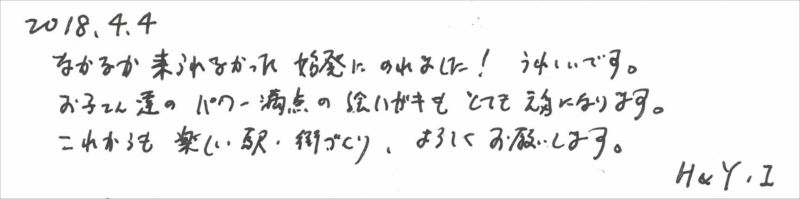 2018.4.4
なかなか来られなかった始発にのれました! うれしいです。
お子さん達のパワー満点の絵ハガキもとても元気になります。
これからも楽しい駅・街づくり、よろしくお願いします。
H&Y.I